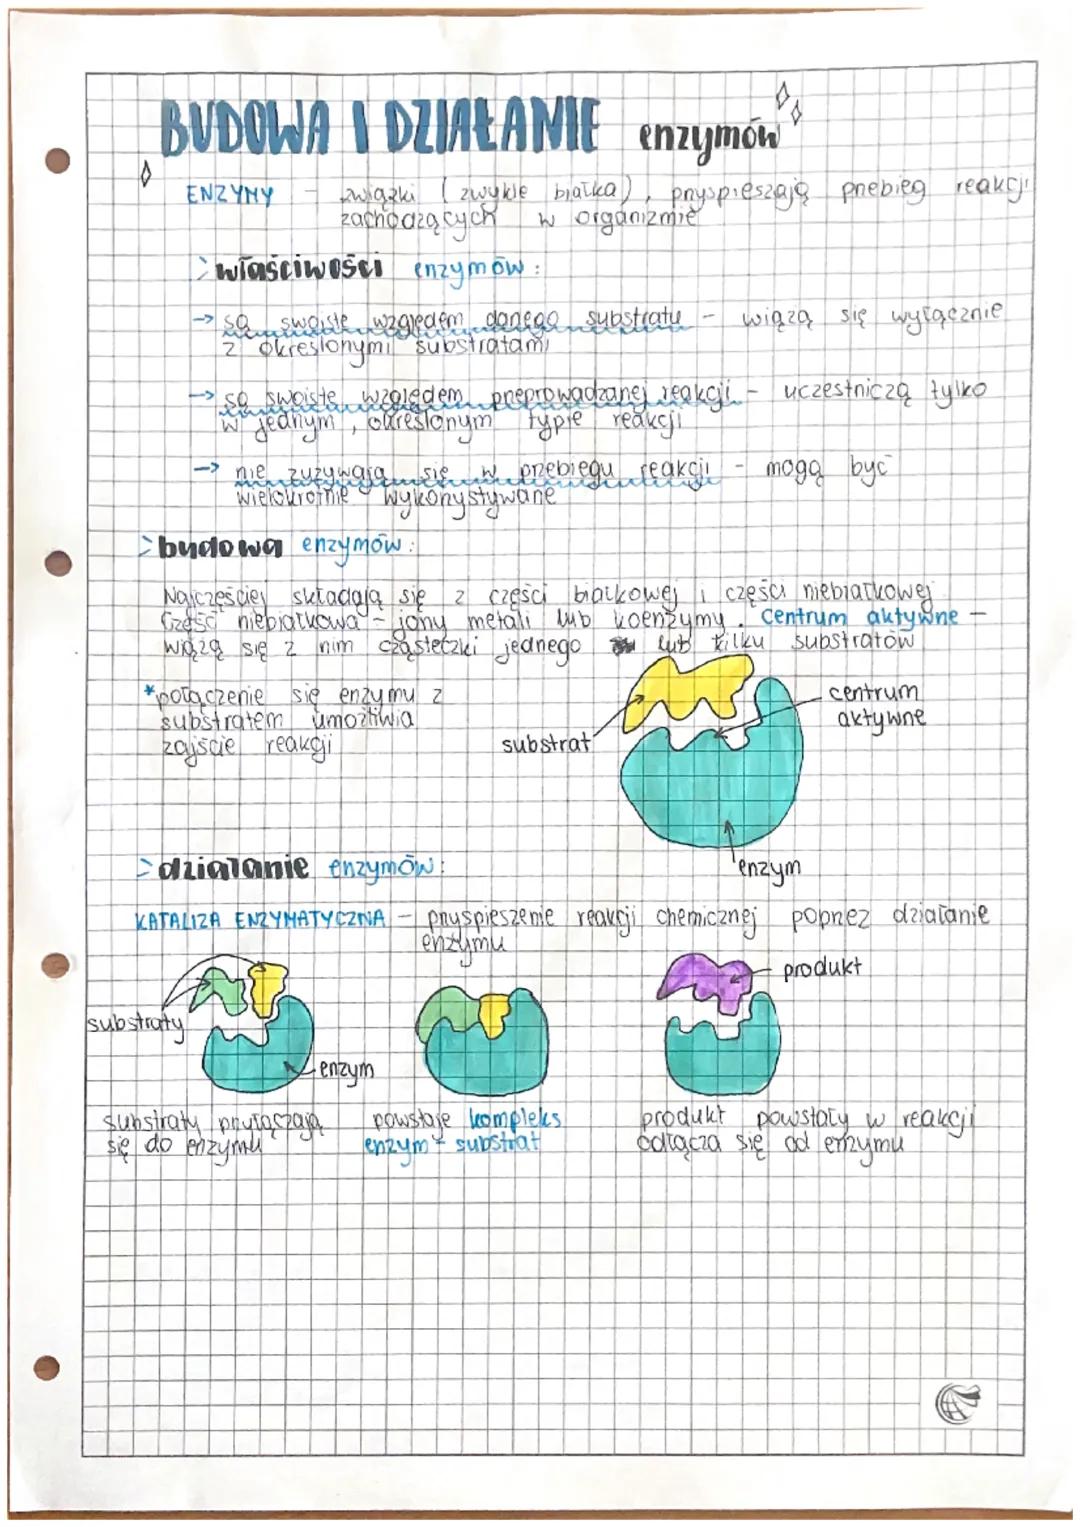 BUDOWA I DZIAŁANIE enzymów
ENZYMY - związki (zwykle białka), przyspieszają przebieg reakcji
zachodzących w organizmie
> właściwości enzymów:
→ są swoiste względem danego substratu - wiążą się wyłącznie
z określonymi substratami
→ są swoiste względem przeprowadzanej reakcji - uczestniczą tylko
w jednym, określonym typie reakcji
→ nie zużywają się w przebiegu reakcji - mogą być
wielokrotnie wykorzystywane
> budowa enzymów:
Najczęściej składają się z części białkowej i części niebiałkowej
Część niebiałkowa - jony metali lub koenzymy. Centrum aktywne -
wiążą się z nim cząsteczki jednego lub kilku substratów
*połączenie się enzymu z
substratem umożliwia
zajście reakcji
substrat
centrum
aktywne
enzym
> działanie enzymów:
KATALIZA ENZYMATYCZNA - przyspieszenie reakcji chemicznej poprzez działanie
enzymu
substraty
enzym
produkt
substraty przyłączają
się do enzymu
powstaje kompleks
enzym - substrat
produkt powstały w reakcji
odłącza się od enzymu